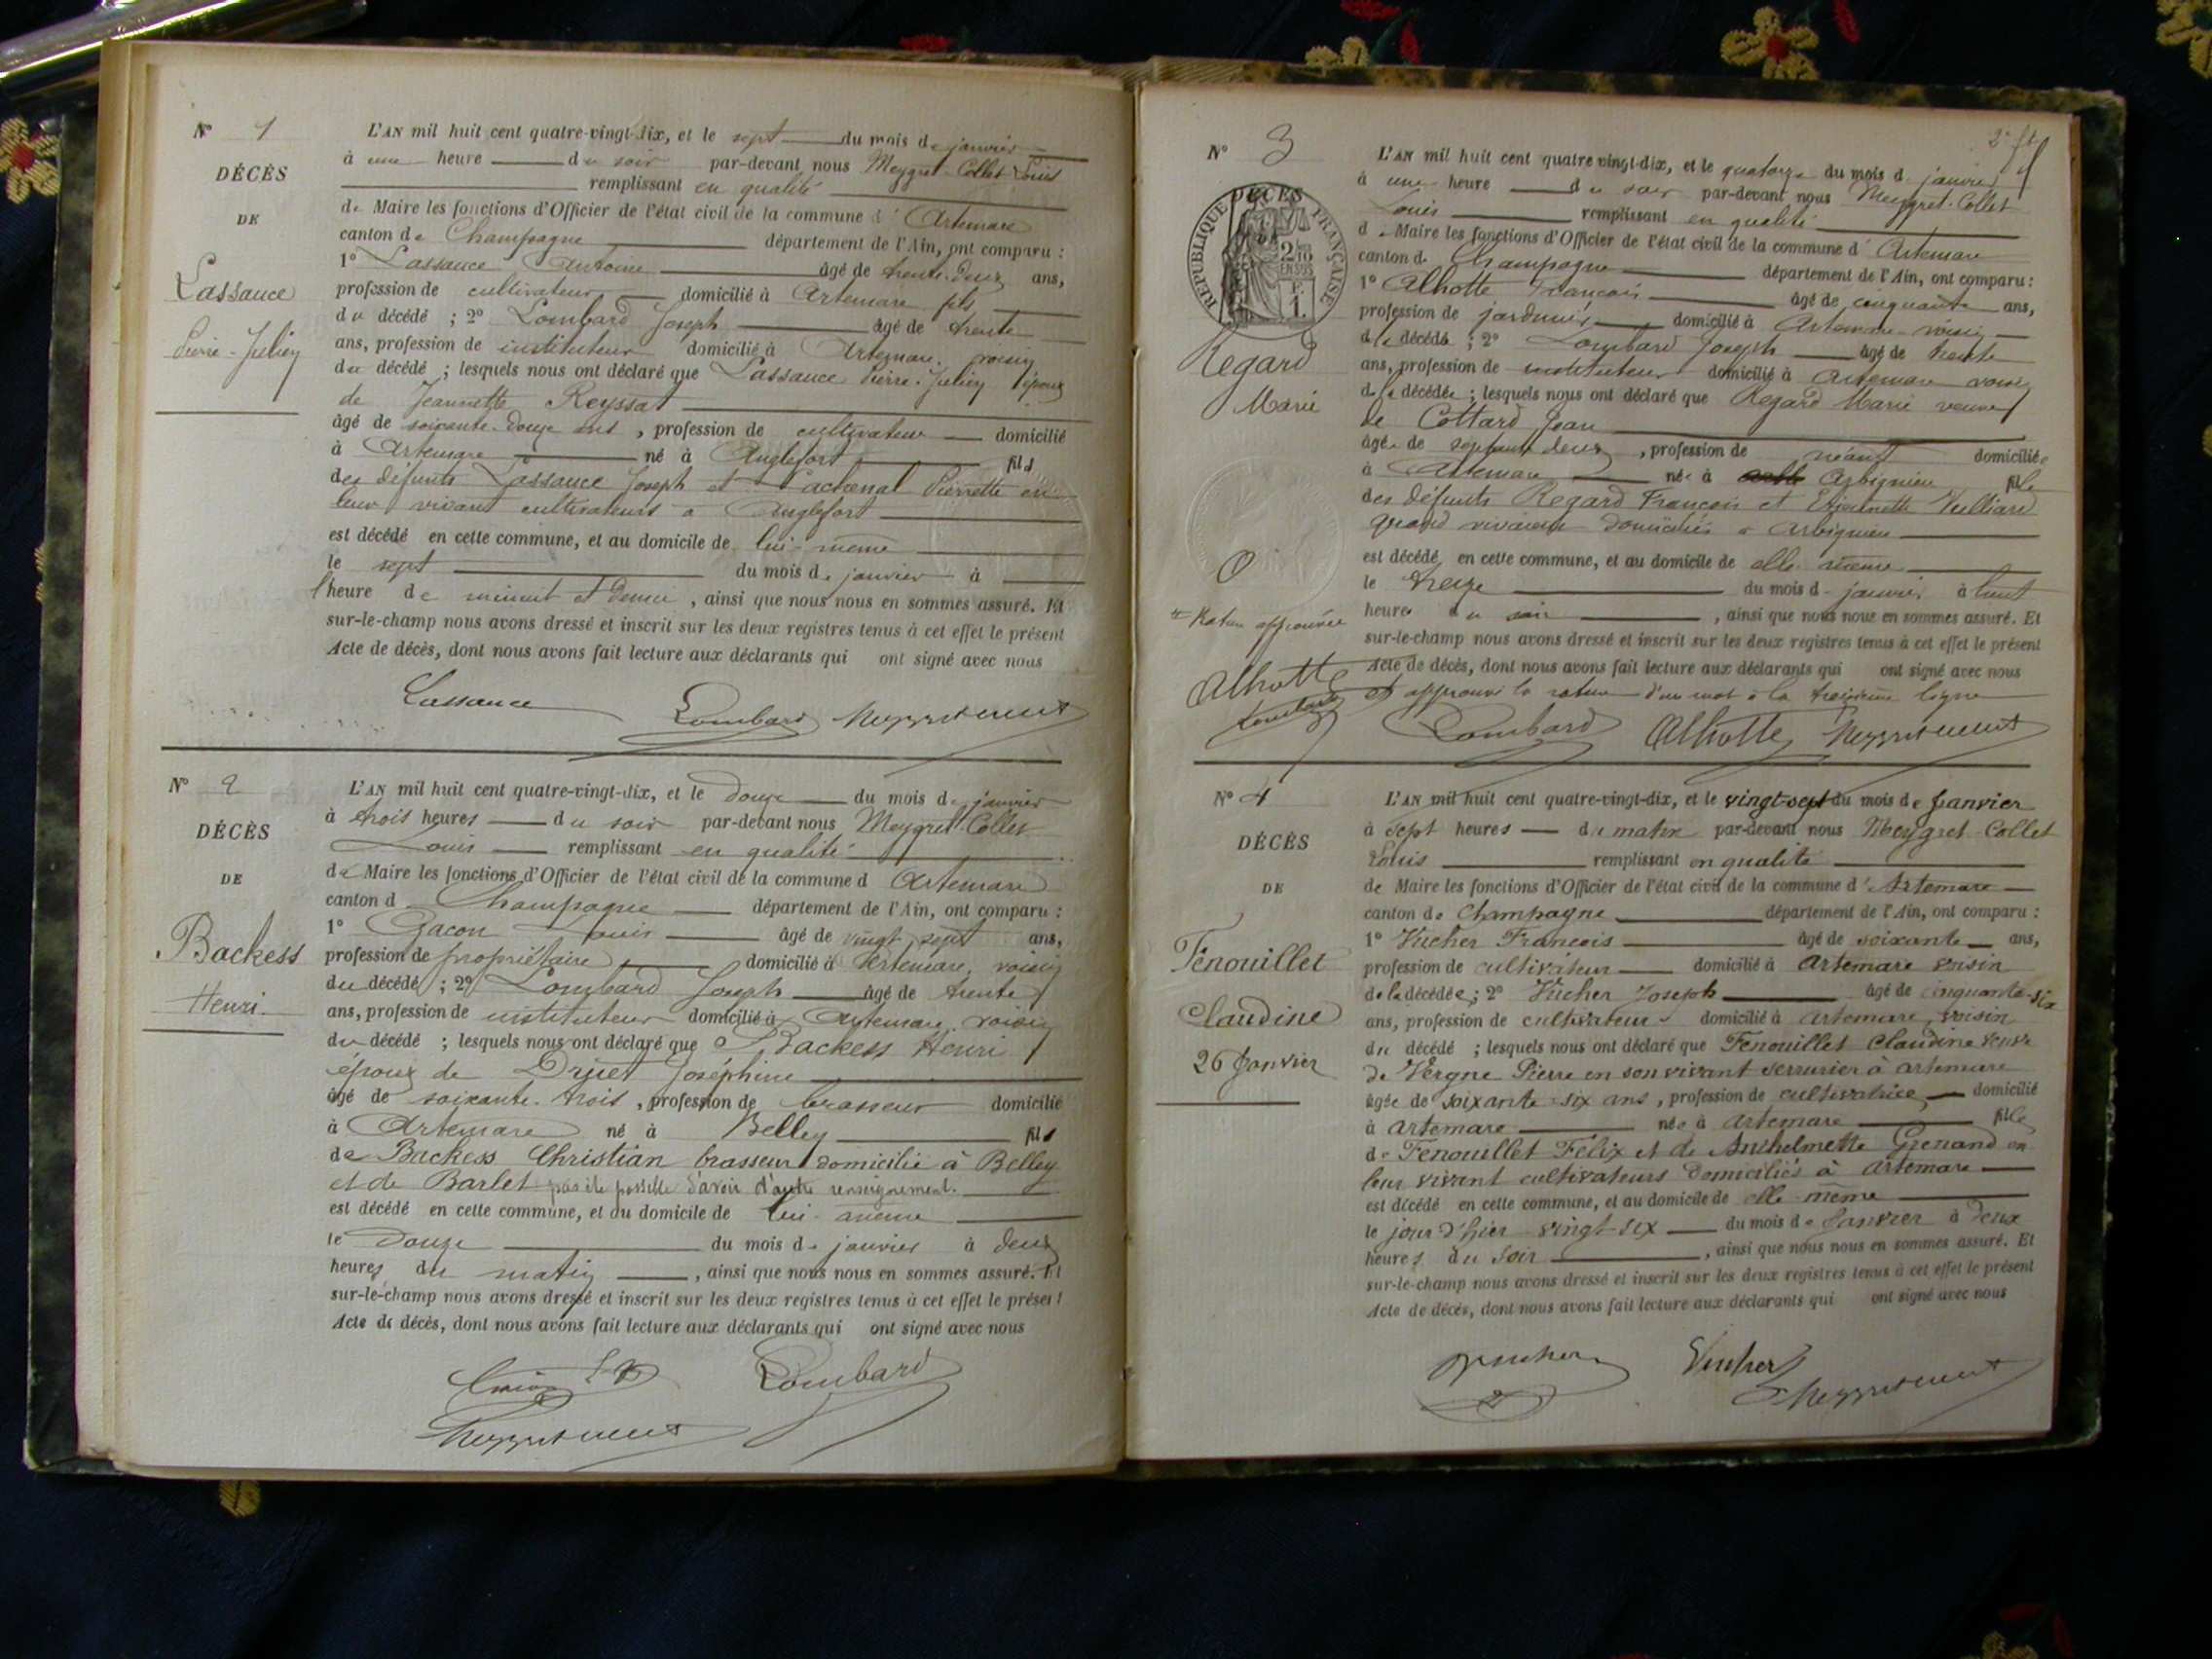 N° 1
DÉCÈS
DE
Lassauce
Pierre-Julien
L'AN mil huit cent quatre-vingt-dix, et le sept du mois de janvier
à une heure du soir par-devant nous Meygret-Collet Louis
remplissant en qualité
de Maire les fonctions d'Officier de l'état civil de la commune d'Artemare
canton de Champagne département de l'Ain, ont comparu :
1° Lassauce Antoine âgé de trente-deux ans,
profession de cultivateur domicilié à Artemare fils
du décédé ; 2° Lombard Joseph âgé de trente
ans, profession de instituteur domicilié à Artemare, voisin
du décédé ; lesquels nous ont déclaré que Lassauce Pierre-Julien époux
de Jeannette Reyssat
âgé de soixante-douze ans, profession de cultivateur domicilié
à Artemare né à Anglefort fils
des défunts Lassauce Joseph et Lachenal Pierrette en
leur vivant cultivateurs à Anglefort
est décédé en cette commune, et au domicile de lui-même
le sept du mois de janvier à
l'heure de minuit et demie, ainsi que nous nous en sommes assuré. Et
sur-le-champ nous avons dressé et inscrit sur les deux registres tenus à cet effet le présent
Acte de décès, dont nous avons fait lecture aux déclarants qui ont signé avec nous
Lassauce Lombard
N° 2
DÉCÈS
DE
Backess
Henri
L'AN mil huit cent quatre-vingt-dix, et le douze du mois de janvier
à trois heures du soir par-devant nous Meygret-Collet
Louis remplissant en qualité
de Maire les fonctions d'Officier de l'état civil de la commune d Artemare
canton d Champagne département de l'Ain, ont comparu :
1° Gacon Louis âgé de vingt sept ans,
profession de propriétaire domicilié à Artemare, voisin
du décédé ; 2° Lombard Joseph âgé de trente
ans, profession de instituteur domicilié à Artemare, voisin
du décédé ; lesquels nous ont déclaré que Backess Henri
époux de Drjuet Joséphine
âgé de soixante-trois, profession de brasseur domicilié
à Artemare né à Belley fils
de Backess Christian brasseur domicilié à Belley
et de Barlet pas été possible d'avoir d'autre renseignement.
est décédé en cette commune, et au domicile de lui-même
le douze du mois de janvier à deux
heures du matin, ainsi que nous nous en sommes assuré. Et
sur-le-champ nous avons dressé et inscrit sur les deux registres tenus à cet effet le présent
Acte de décès, dont nous avons fait lecture aux déclarants qui ont signé avec nous
Lombard
2e ft
N° 3
DÉCÈS
RÉPUBLIQUE FRANÇAISE
2/10 EN SUS
F. 1.
Regard
Marie
Rature approuvée
Alhotte
Lombard
L'AN mil huit cent quatre vingt-dix, et le quatorze du mois d janvier
à une heure du soir par-devant nous Meygret-Collet
Louis remplissant en qualité
d Maire les fonctions d'Officier de l'état civil de la commune d' Artemare
canton de Champagne département de l'Ain, ont comparu :
1° Alhotte François âgé de cinquante ans,
profession de jardinier domicilié à Artemare voisin
de la décédée ; 2° Lombard Joseph âgé de trente
ans, profession de instituteur domicilié à Artemare voisin
de la décédée ; lesquels nous ont déclaré que Regard Marie veuve
de Cottard Jean
âgée de septante deux, profession de néant domiciliée
à Artemare née à Arbignieu fille
des défunts Regard François et Etiennette Vulliard
quand vivaient domiciliés à Arbignieu
est décédé en cette commune, et au domicile de elle-même
le treize du mois d janvier à huit
heures du soir, ainsi que nous nous en sommes assuré. Et
sur-le-champ nous avons dressé et inscrit sur les deux registres tenus à cet effet le présent
Acte de décès, dont nous avons fait lecture aux déclarants qui ont signé avec nous
et approuvé la rature d'un mot à la treizième ligne
Lombard Alhotte
N° 4
DÉCÈS
DE
Fenouillet
Claudine
26 Janvier
L'AN mil huit cent quatre-vingt-dix, et le vingt-sept du mois de Janvier
à sept heures du matin par-devant nous Meygret-Collet
Louis remplissant en qualité
de Maire les fonctions d'Officier de l'état civil de la commune d'Artemare
canton de Champagne département de l'Ain, ont comparu :
1° Vucher François âgé de soixante ans,
profession de cultivateur domicilié à Artemare voisin
de la décédée ; 2° Vucher Joseph âgé de cinquante-six
ans, profession de cultivateur domicilié à Artemare, voisin
du décédé ; lesquels nous ont déclaré que Fenouillet Claudine veuve
de Vergne Pierre en son vivant serrurier à Artemare
âgée de soixante-six ans, profession de cultivatrice domicilié
à Artemare née à Artemare fille
de Fenouillet Félix et de Anthelmette Grenand en
leur vivant cultivateurs domiciliés à Artemare
est décédé en cette commune, et au domicile de elle-même
le jour d'hier vingt-six du mois de Janvier à deux
heures du soir, ainsi que nous nous en sommes assuré. Et
sur-le-champ nous avons dressé et inscrit sur les deux registres tenus à cet effet le présent
Acte de décès, dont nous avons fait lecture aux déclarants qui ont signé avec nous
Vucher Vucher